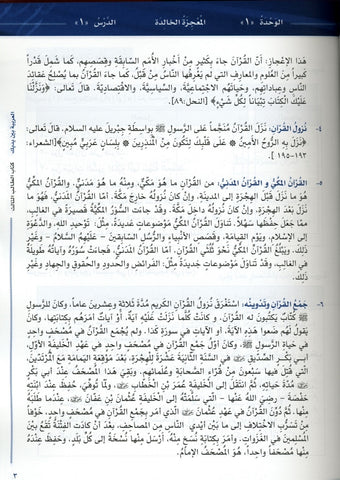 الوَحْدَةُ «١» المُعْجِزَةُ الخَالِدَةُ الدَّرْسُ «١»
هذا الإعْجَازِ: أنّ القُرْآنَ جاءَ بِكَثِيرٍ مِنْ أخْبَارِ الأُمَمِ السَّابِقَةِ وقِصَصِهِم، كما شَمِلَ قَدْراً
كبيراً مِنَ العُلُومِ والمعارِفِ التي لَم يَعْرِفْها النَّاسُ مِنْ قَبْلُ. كما جاءَ القُرْآنُ بما يُصْلِحُ عَقائِدَ
النّاسِ وعِباداتِهِم، وحَياتَهُم الاجْتِمَاعِيَّةَ، والسِّيَاسِيَّةَ، والاقْتِصَادِيَّةَ. قالَ تَعالى: ﴿وَنَزَّلْنَا
عَلَيْكَ الْكِتَابَ تِبْيَاناً لِكُلِّ شَيْءٍ﴾ [النحل:٨٩].
٤- نُزُولُ القُرْآنِ: نَزَلَ القُرْآنُ مُنَجَّماً على الرَّسولِ ﷺ بواسِطَةِ جِبْرِيلَ عليه السلام. قالَ تَعالى:
﴿نَزَلَ بِهِ الرُّوحُ الأَمِينُ * عَلَى قَلْبِكَ لِتَكُونَ مِنَ الْمُنذِرِينَ * بِلِسَانٍ عَرَبِيٍّ مُبِينٍ﴾[الشعراء:
١٩٣-١٩٥].
٥- القُرْآنُ المَكِّيُّ و القُرْآنُ المَدَنِيُّ: من القُرْآنِ ما هُوَ مَكِّيٌّ، ومِنْهُ ما هُوَ مَدَنِيٌّ. والقُرْآنُ المَكِّيُّ
هُوَ ما نَزَلَ قَبْلَ الهِجْرَةِ إلى المَدِينَةِ، وإنْ كانَ نُزُولُهُ خَارِجَ مَكَّةَ. أمّا القُرْآنُ المَدَنِيُّ، فَهُوَ ما
نَزَلَ بَعْدَ الهِجْرَةِ، وإنْ كانَ نُزُولُهُ داخِلَ مَكَّةَ. وقدْ جاءَتِ السُّوَرُ المَكِّيَّةُ قَصيرَةً في الغالِبِ،
ممّا جَعَلَ حِفْظَها سَهْلاً. تَناوَلَ القُرْآنُ المَكِّيُّ مَوْضُوعاتٍ عَدِيدَةً، مِثْلَ: تَوْحِيدِ اللهِ، والدَّعْوَةِ
إلى الإسْلامِ، ويَوْمِ القِيامَةِ، وقَصَصِ الأنْبِياءِ والرُّسُلِ السّابِقِينَ – عَلَيْهِمُ السَّلامُ – وغَيْرِ
ذلِكَ. ويَبْلُغُ القُرْآنُ المَكِّيُّ نَحْوَ ثُلُثَيِ القُرْآنِ. أمّا القُرْآنُ المَدَنِيُّ، فَجاءَتْ سُوَرُهُ وآياتُهُ طَوِيلَةً
في الغالِبِ، وقَدْ تَناوَلَ مَوْضُوعاتٍ جَدِيدَةً مِثْلَ: الفَرائِضِ والحُدودِ والحُقوقِ والجِهادِ وغَيْرِ
ذلِكَ.
٦- جَمْعُ القُرْآنِ وتَدْوِينُهُ: اسْتَغْرَقَ نُزُولُ القُرْآنِ الكَرِيمِ مُدَّةَ ثَلاثَةٍ وعِشْرِينَ عاماً، وكانَ لِلرَّسولِ
ﷺ كُتَّابٌ يَكْتُبُونَ له القُرْآنَ، و كانَتْ كُلَّما نَزَلَتْ عَلَيْهِ آيَةٌ، أوْ آياتٌ أمَرَهُم بِكِتابَتِها، وكانَ
يَقولُ لَهُم ضَعوا هذِهِ الآيَةَ، أو الآياتِ في سورَةِ كَذا. ولم يُجْمَعِ القُرْآنُ في مُصْحَفٍ واحِدٍ
في حَياةِ الرَّسولِ ﷺ وكانَ أوَّلُ جَمْعٍ للقُرْآنِ في مُصْحَفٍ واحِدٍ في عَهْدِ الخَلِيفَةِ الأوَّلِ،
أبي بَكْرٍ الصِّدِّيقِ في السَّنَةِ الثّانِيَةَ عَشْرَةَ لِلْهِجْرَةِ، بَعْدَ مَوْقِعَةِ اليَمامَةِ مَعَ المُرْتَدِّينَ،
التي قُتِلَ فيها سَبْعونَ مِنْ قُرّاءِ الصَّحابَةِ وعُلَمائِهِم، وبَقِيَ هذا المُصْحَفُ عِنْدَ أبي بَكْرٍ
مُدَّةَ حَياتِهِ، ثُمَّ انْتَقَلَ إلى الخَلِيفَةِ عُمَرَ بْنِ الخَطّابِ ، ولَمّا تُوُفِّيَ، حُفِظَ عِنْدَ ابْنَتِهِ
حَفْصَةَ – رضِيَ اللهُ عَنْها – التي سَلَّمَتْهُ إلى الخَلِيفَةِ عُثْمانَ بْنِ عَفّانَ ، عِنْدَما طَلَبَهُ
مِنْها. ثُمَّ دُوِّنَ القُرْآنُ في عَهْدِ عُثْمانَ الذي أمَرَ بِجَمْعِ القُرْآنِ في مُصْحَفٍ واحِدٍ، خَوْفاً
مِنْ تَسَرُّبِ الاخْتِلافِ إلى ما بَيْنَ أيْدي النّاسِ مِنَ المَصاحِفِ، بَعْدَ أنْ كادَتِ الفِتْنَةُ تَقَعُ بَيْنَ
المُسْلِمينَ في الغَزَواتِ. وأمَرَ بِكِتابَةِ نُسَخٍ مِنْهُ، أرْسَلَ مِنْها نُسْخَةً إلى كُلِّ بَلَدٍ، وحَفِظَ عِنْدَهُ
مِنْها مُصْحَفاً واحِداً، هو المُصْحَفُ الإمامُ.
العربية بين يديك
كتاب الطالب الثالث
٣